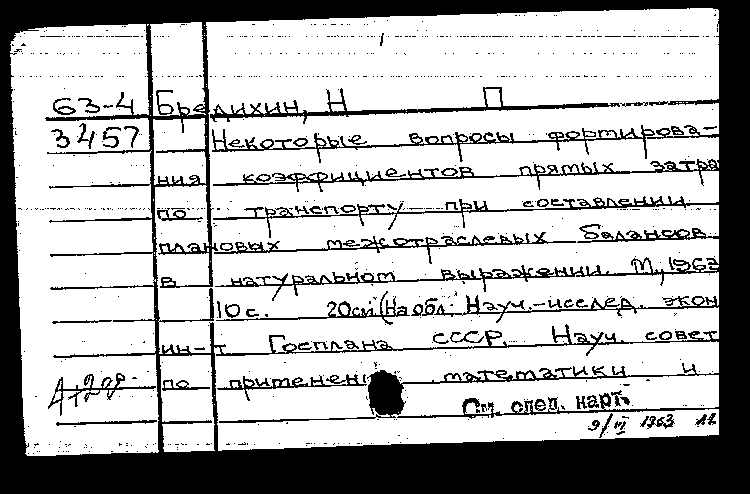 63-4 Бредихин, Н П
3457 Некоторые вопросы формирова-
ния коэффициентов прямых затра
по транспорту при составлении
плановых межотраслевых балансов
в натуральном выражении. М., 1963
10 с. 20см (На обл: Науч.-исслед. экон
ин-т Госплана СССР. Науч. совет
по применени математики и
См. спец. карт.
9/III 1963